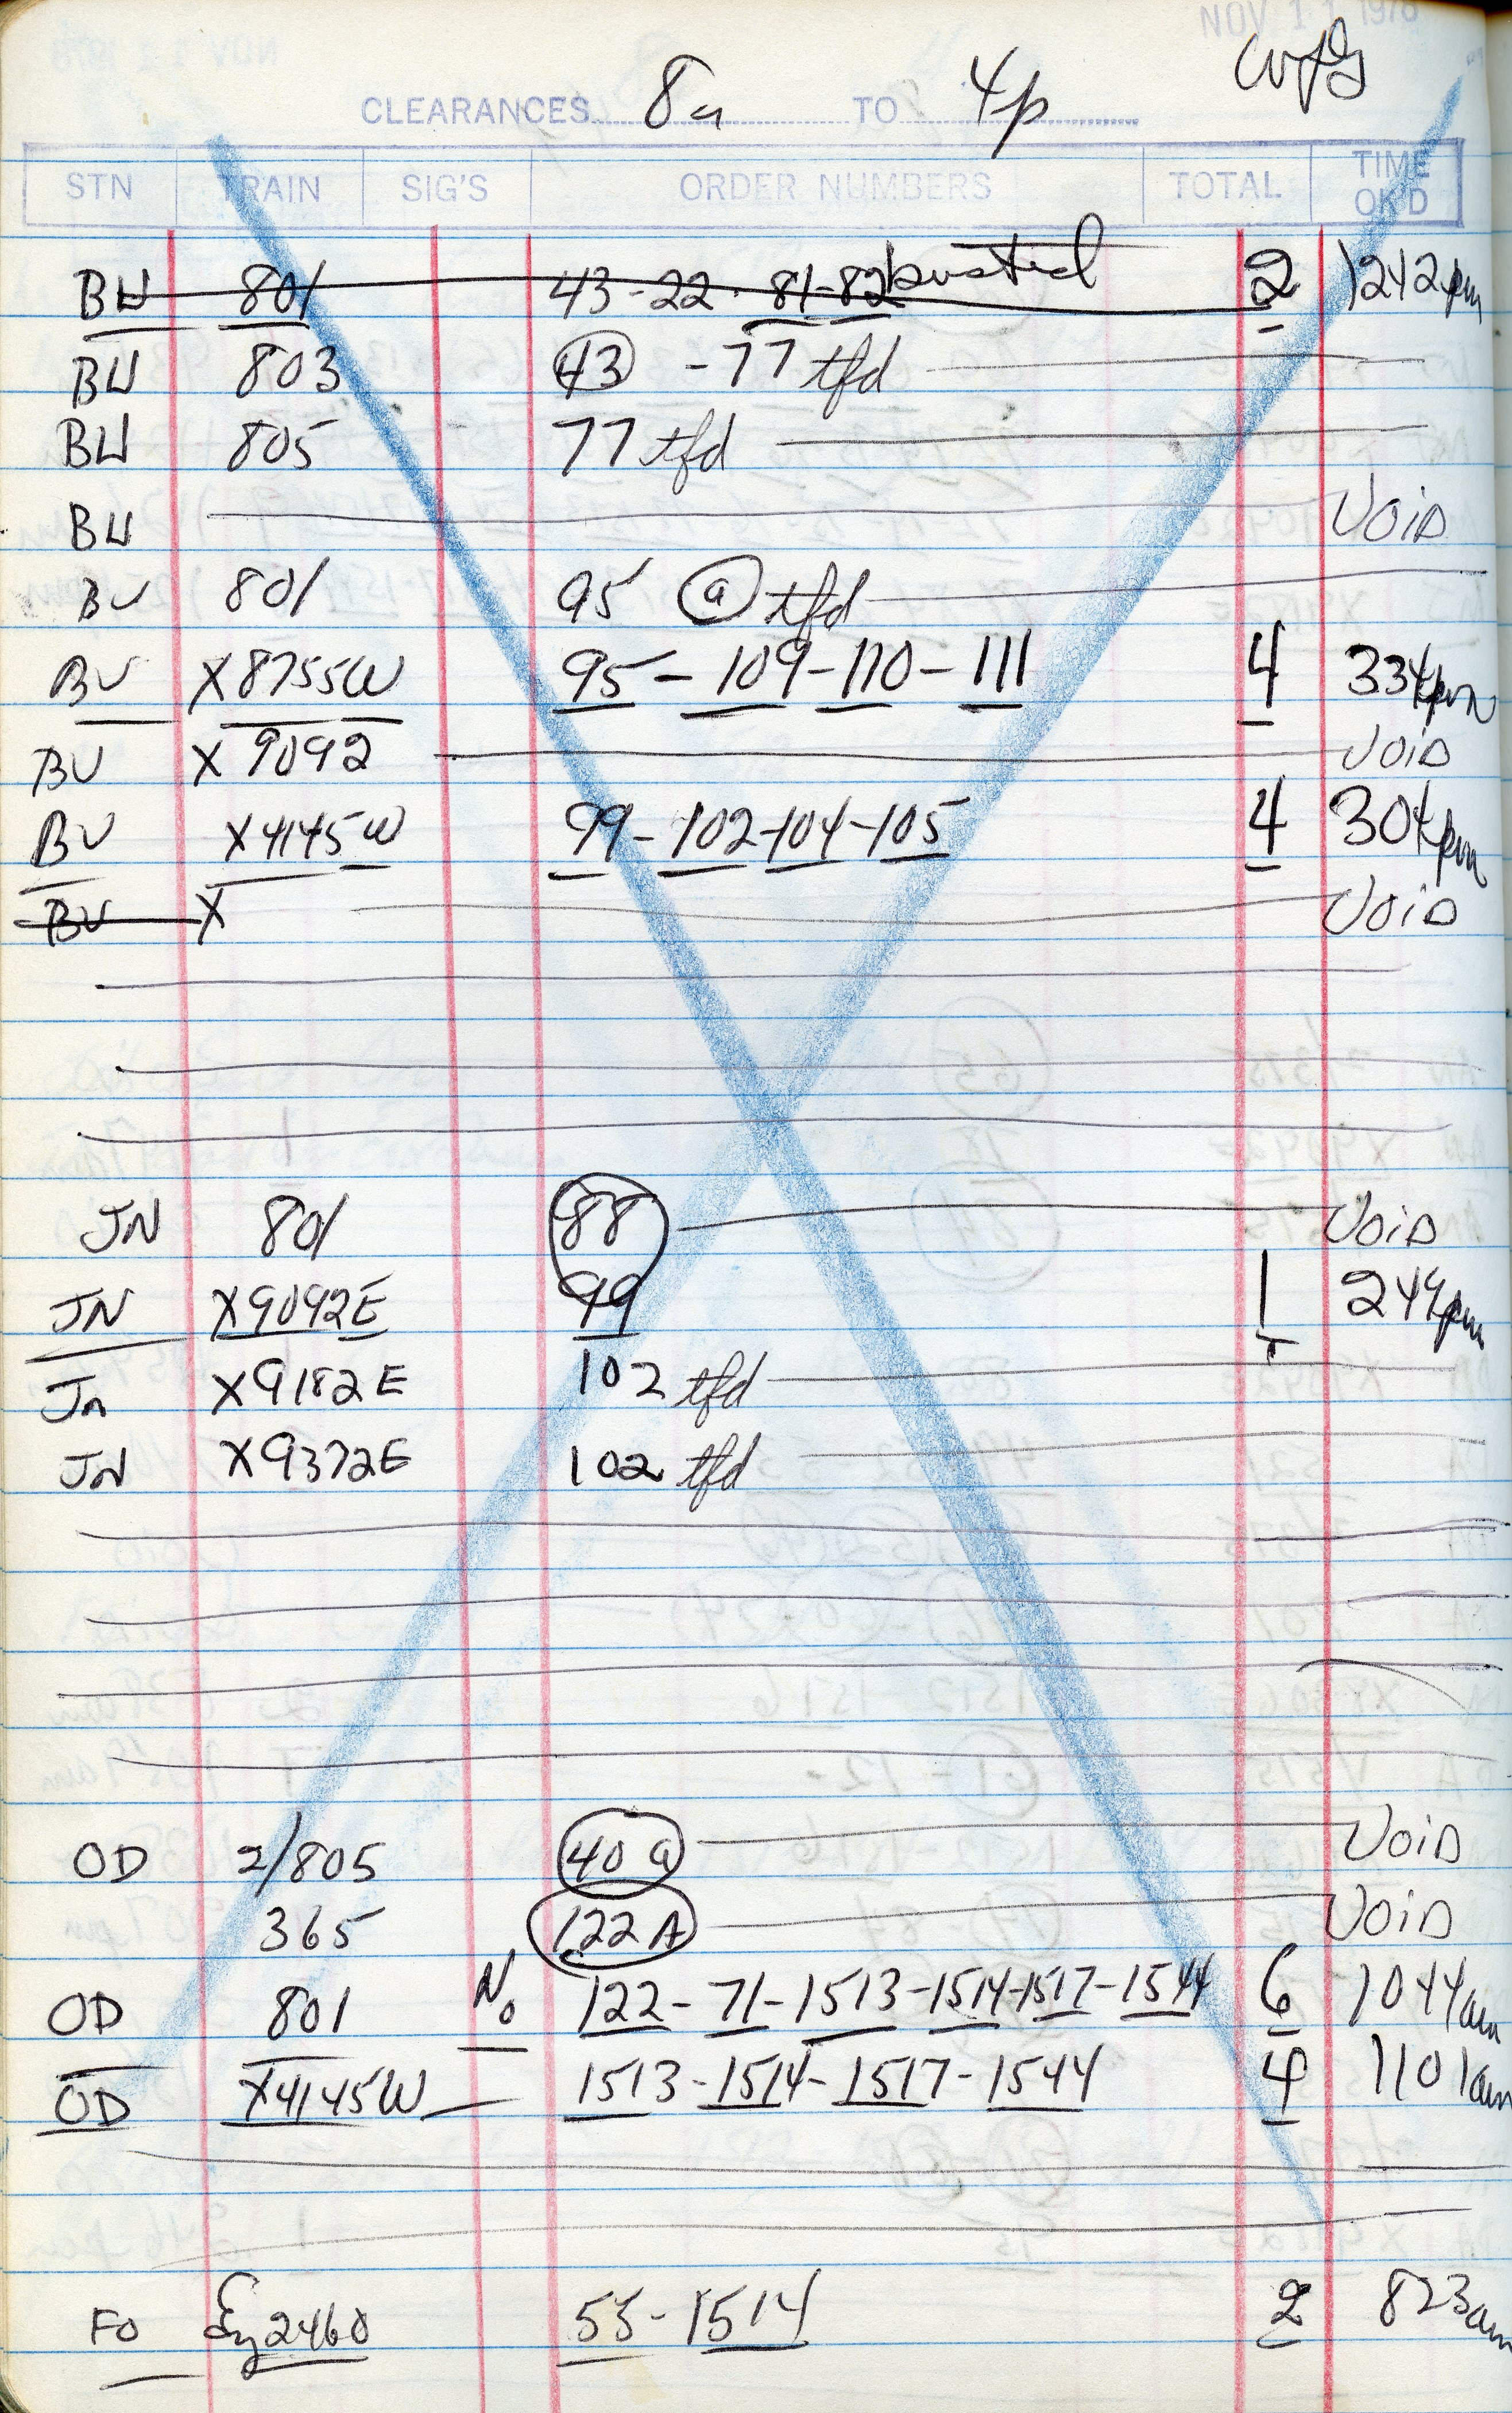 NOV 11 1978
CLEARANCES 8a TO 4p
STN TRAIN SIG'S ORDER NUMBERS TOTAL TIME OK'D
BU 801 43-22-81-82 busted 2 1242pm
BU 803 43 -77 tfd
BU 805 77 tfd
BU Void
BU 801 95 a tfd
BU X8755W 95-109-110-111 4 334pm
BU X9092 Void
BU X4145W 99-102-104-105 4 304pm
BU X Void
JN 801 88 Void
JN X9092E 99 1 249pm
Jn X9182E 102 tfd
JN X9372E 102 tfd
OD 2/805 40a Void
365 122A Void
OD 801 No 122-71-1513-1514-1517-1544 6 1044am
OD X4145W 1513-1514-1517-1544 4 1101am
FO Eng 2460 55-1514 2 823am